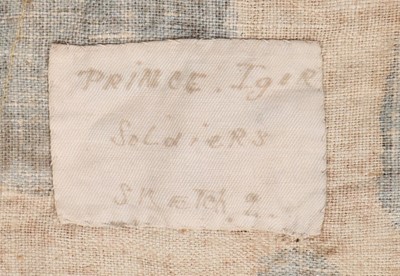 PRINCE. Igor
Soldiers
SKETCh 2.